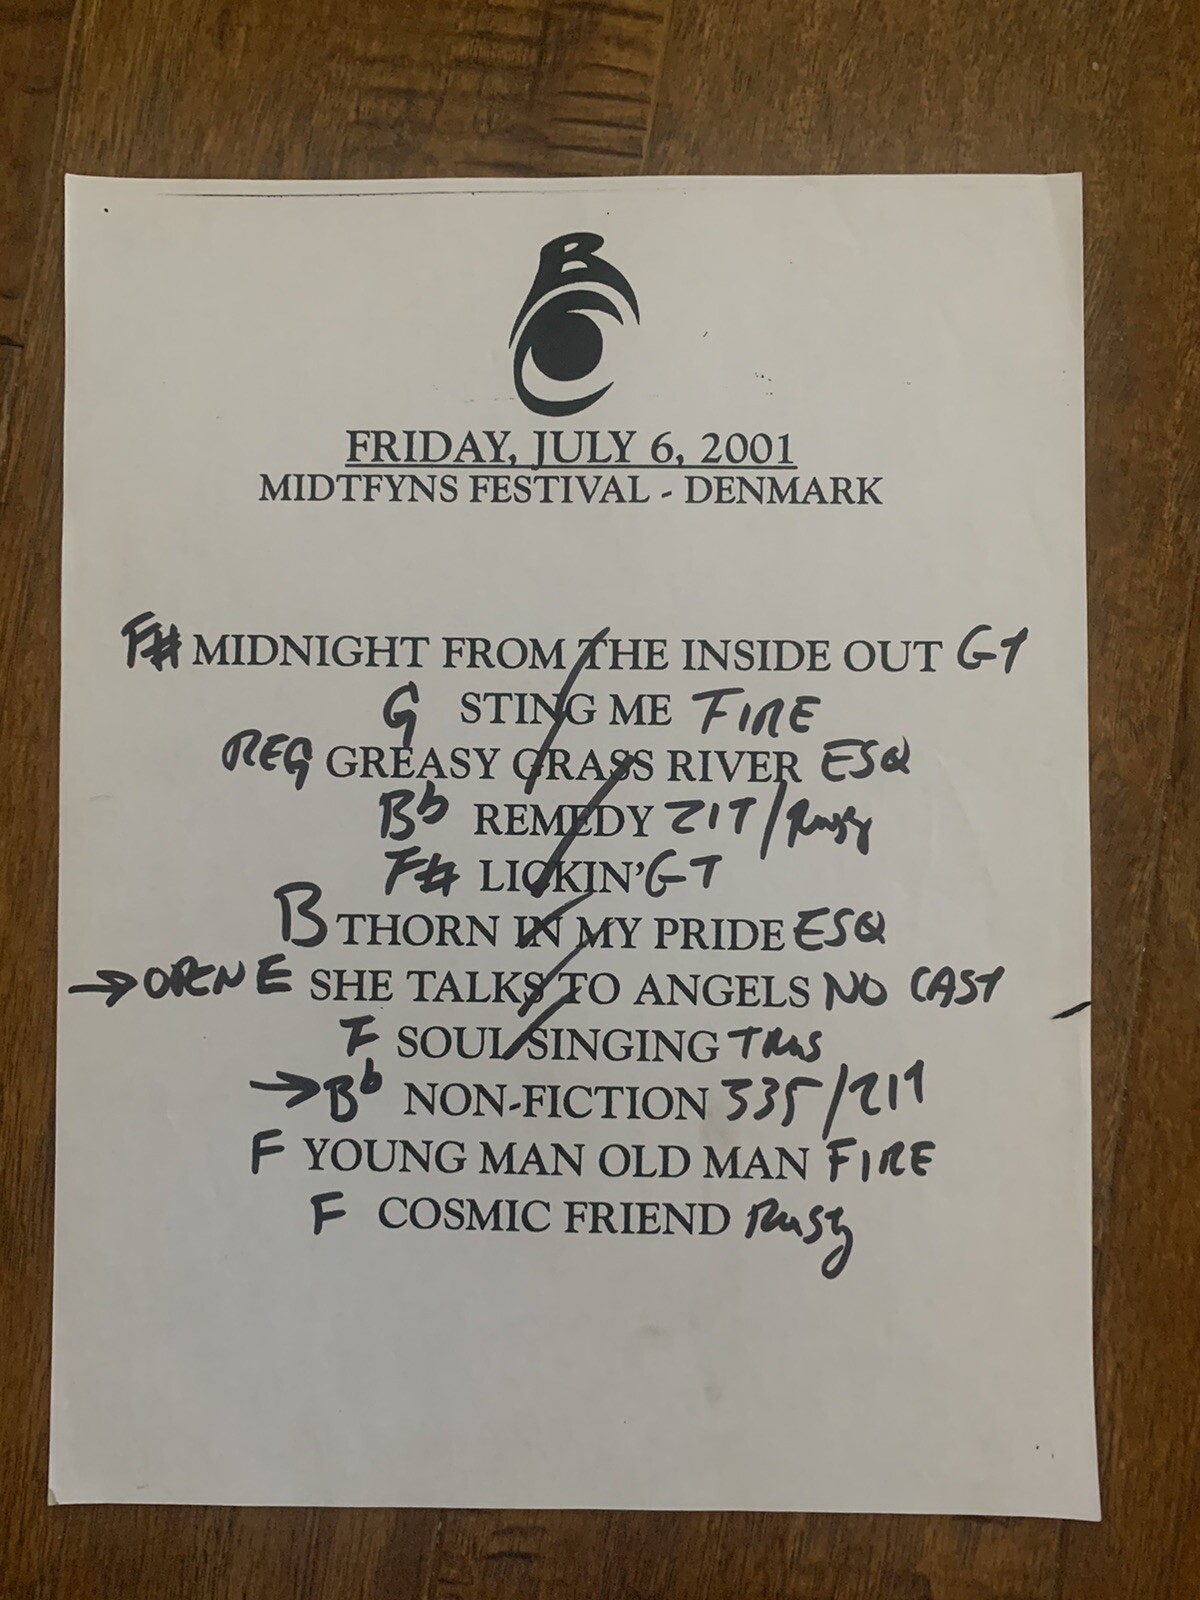 B
C
FRIDAY, JULY 6, 2001
MIDTFYNS FESTIVAL - DENMARK
F# MIDNIGHT FROM THE INSIDE OUT GT
G STING ME FIRE
REG GREASY GRASS RIVER ESQ
Bb REMEDY ZIT/Rusty
F# LICKIN' GT
B THORN IN MY PRIDE ESQ
→OPEN E SHE TALKS TO ANGELS NO CAST
F SOUL SINGING
→Bb NON-FICTION 335/ZIT
F YOUNG MAN OLD MAN FIRE
F COSMIC FRIEND Rusty